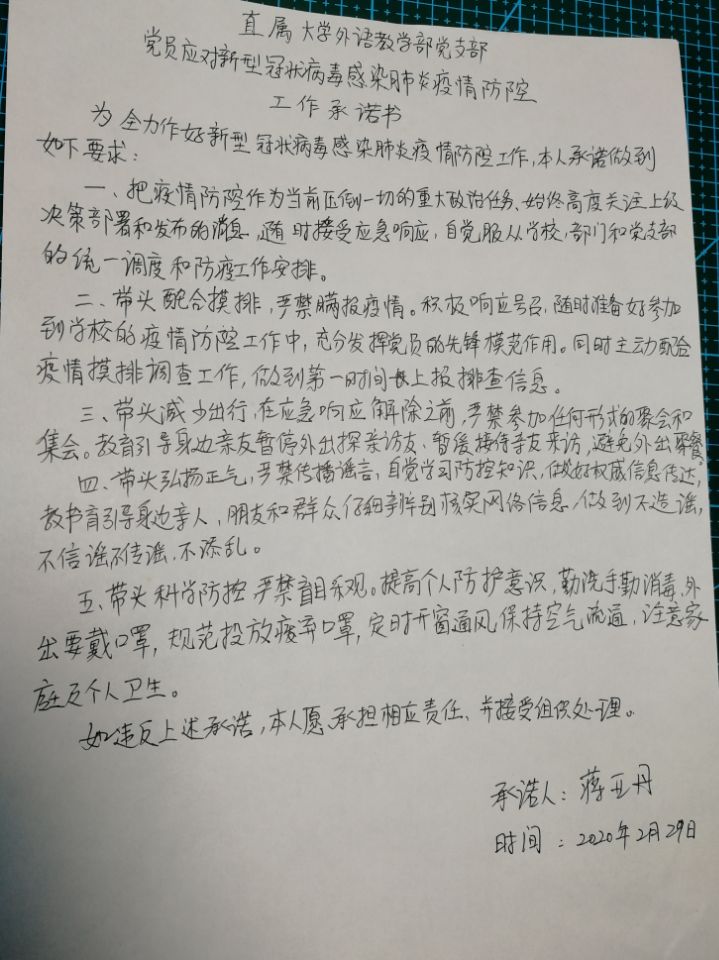 直属大学外语教学部党支部
党员应对新型冠状病毒感染肺炎疫情防控
工作承诺书
为全力作好新型冠状病毒感染肺炎疫情防控工作,本人承诺做到
如下要求:
一、把疫情防控作为当前压倒一切的重大政治任务、始终高度关注上级
决策部署和发布的消息,随时接受应急响应,自觉服从学校,部门和党支部
的统一调度和防疫工作安排。
二、带头配合摸排,严禁瞒报疫情。积极响应号召,随时准备好参加
到学校的疫情防控工作中,充分发挥党员的先锋模范作用。同时主动配合
疫情摸排调查工作,做到第一时间上报排查信息。
三、带头减少出行,在应急响应解除之前,严禁参加任何形式的聚会和
集会。教育引导身边亲友暂停外出探亲访友、暂缓接待亲友来访,避免外出聚餐。
四、带头弘扬正气,严禁传播谣言,自觉学习防控知识,做好权威信息传达,
教书育引导身边亲人,朋友和群众仔细辨别核实网络信息,做到不造谣,
不信谣不传谣,不添乱。
五、带头科学防控,严禁盲目乐观。提高个人防护意识,勤洗手勤消毒、外
出要戴口罩,规范投放废弃口罩,定时开窗通风,保持空气流通,注意家
庭及个人卫生。
如违反上述承诺,本人愿承担相应责任、并接受组织处理。
承诺人:蒋亚丹
时间:2020年2月29日